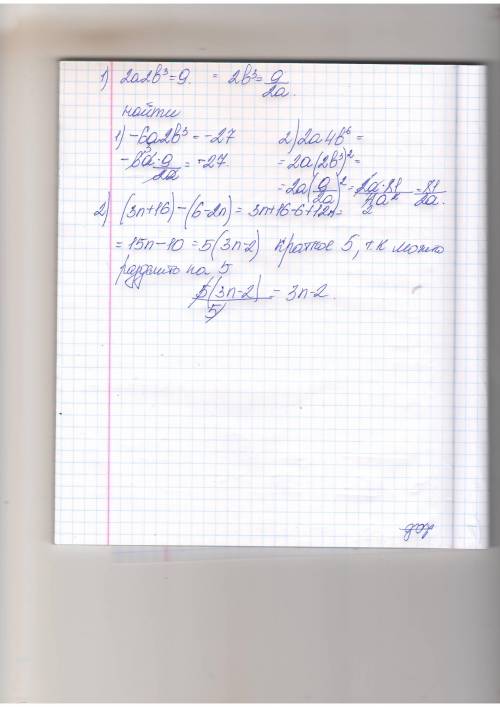 1) 2a2b³=9. = 2b³=9/2a.
найти
1) -6a2b³=-27   2) 2a4b⁶=
-6a·9/2a=-27.   =2a(2b³)²=
3   =2a(9/2a)²=2a·81/4a²=81/2a.
2) (3n+16)-(6-2n)=3n+16-6+12n=   2
=15n-10=5(3n-2) кратное 5, т.к можно
разделить на 5
5(3n-2)/5=3n-2.